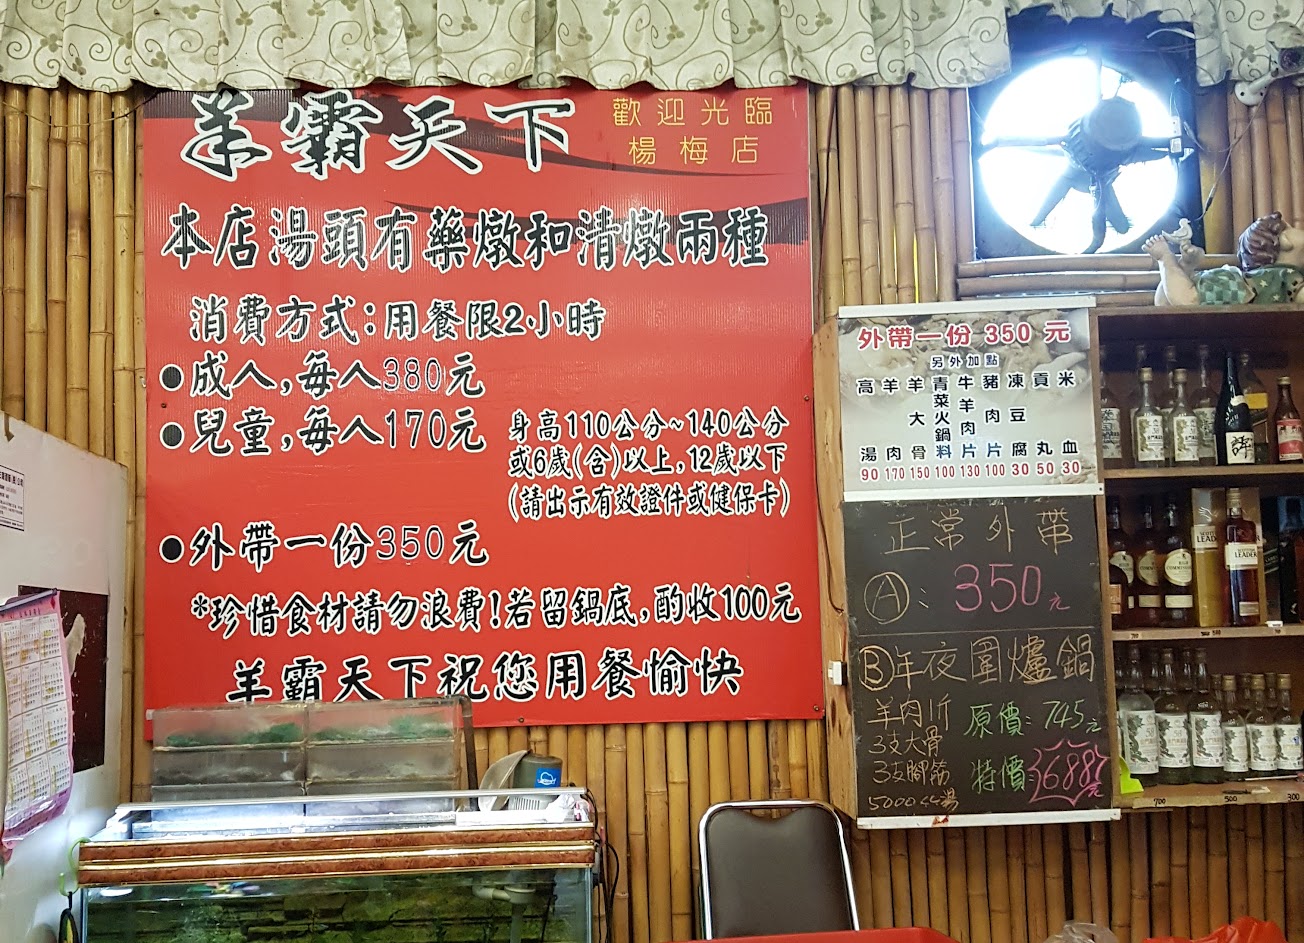 羊霸天下
歡迎光臨
楊梅店
本店湯頭有藥燉和清燉兩種
消費方式:用餐限2小時
●成人,每人380元
●兒童,每人170元
身高110公分~140公分
或6歲(含)以上,12歲以下
(請出示有效證件或健保卡)
●外帶一份350元
*珍惜食材請勿浪費!若留鍋底,酌收100元
羊霸天下祝您用餐愉快
外帶一份 350 元
另外加點
高湯 90
羊肉 170
羊大骨 150
青菜火鍋料 100
牛羊肉片 130
豬肉片 100
凍豆腐 30
貢丸 50
米血 30
正常外帶
Ⓐ: 350元
Ⓑ年夜圍爐鍋
羊肉1斤
3支大骨
3支腳筋
5000cc湯
原價:745元
特價:688元
SCOTTISH
LEADER
700
500
300